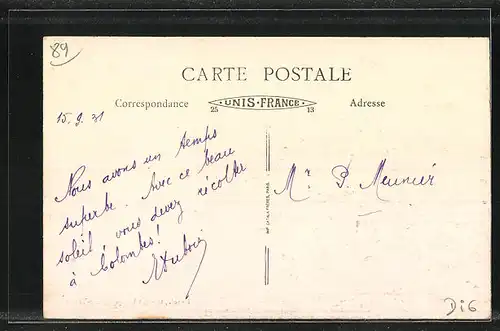 89
CARTE POSTALE
Correspondance
UNIS-FRANCE
25 13
Adresse
15.9.31
Nous avons un temps
superbe. Avec ce beau
soleil, vous devez récolter
à Colombes!
HDubois
Mr P. Meunier
D16